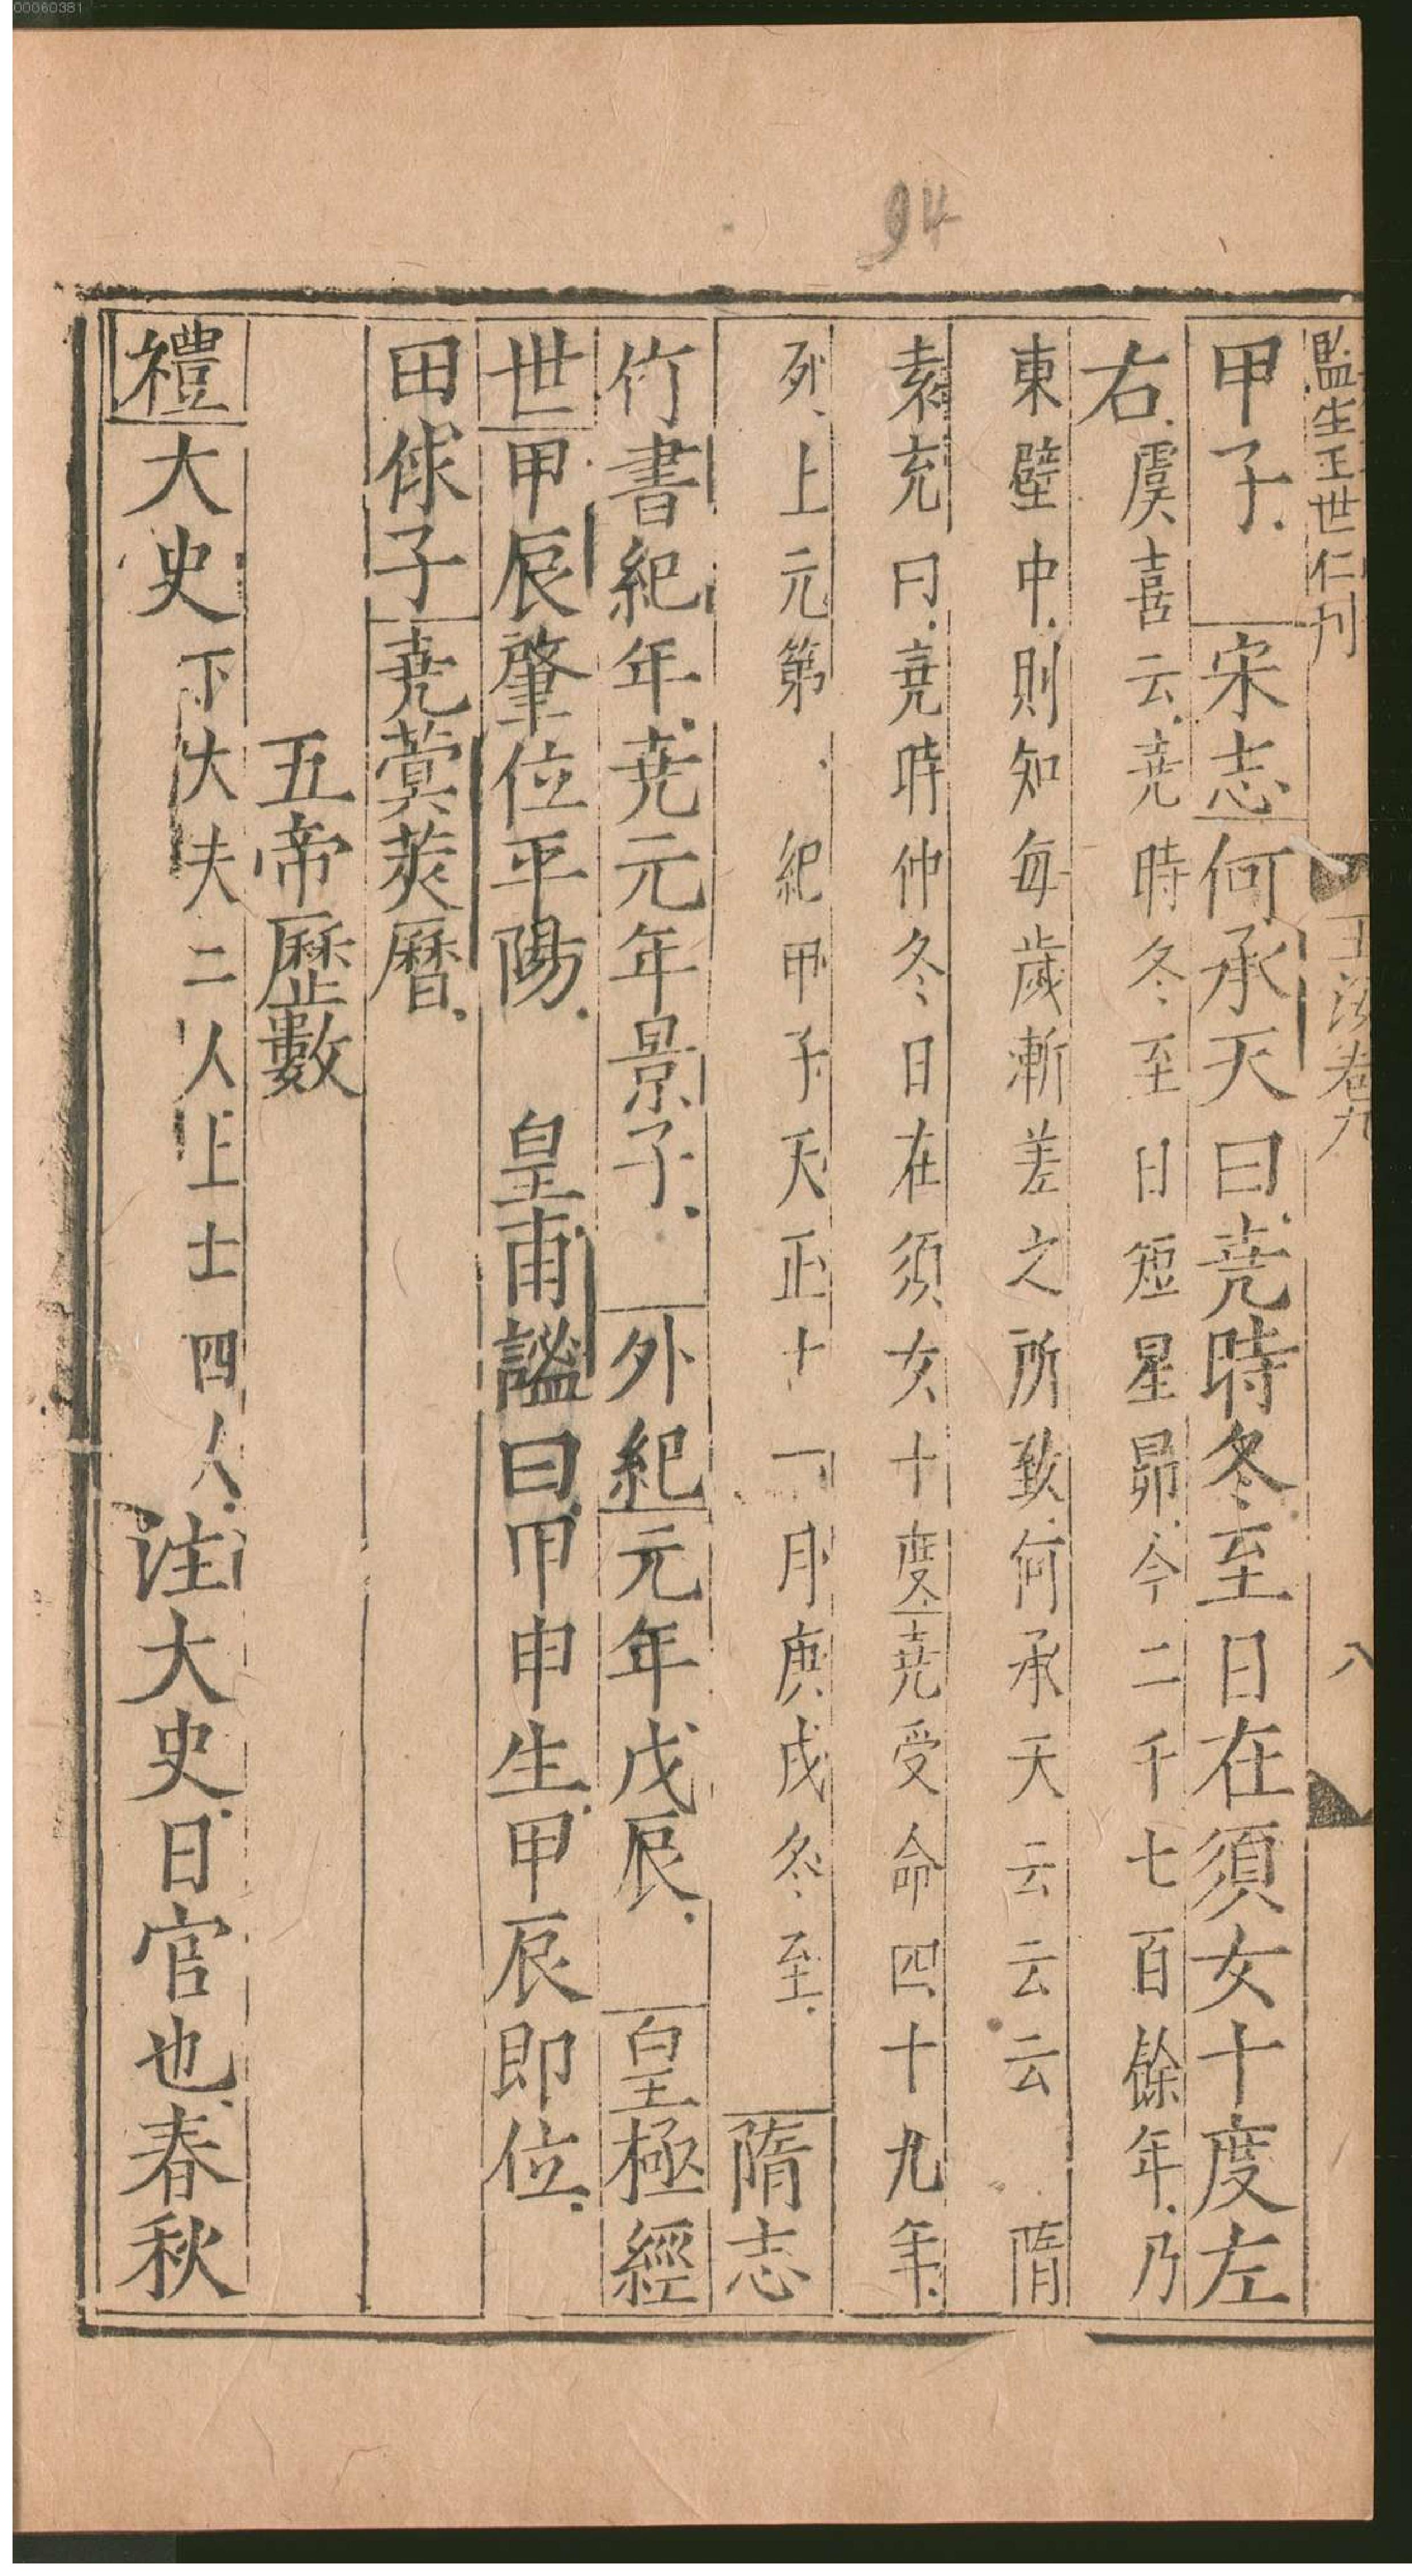 00060381
94
監生王世仁刊
玉海卷九
八
甲子宋志何承天曰堯時冬至日在須女十度左
右虞喜云堯時冬至日短星昴今二千七百餘年乃
東壁中則知每歲漸差之所致何承天云云云隋
袁充曰堯時仲冬日在須女十度堯受命四十九年
列上元第紀甲子天正十一月庚戌冬至隋志
竹書紀年堯元年景子外紀元年戊辰皇極經
世甲辰肇位平陽皇甫謐曰甲申生甲辰即位
田俅子堯蓂莢曆
五帝歷數
禮大史下大夫二人上士四人注大史日官也春秋